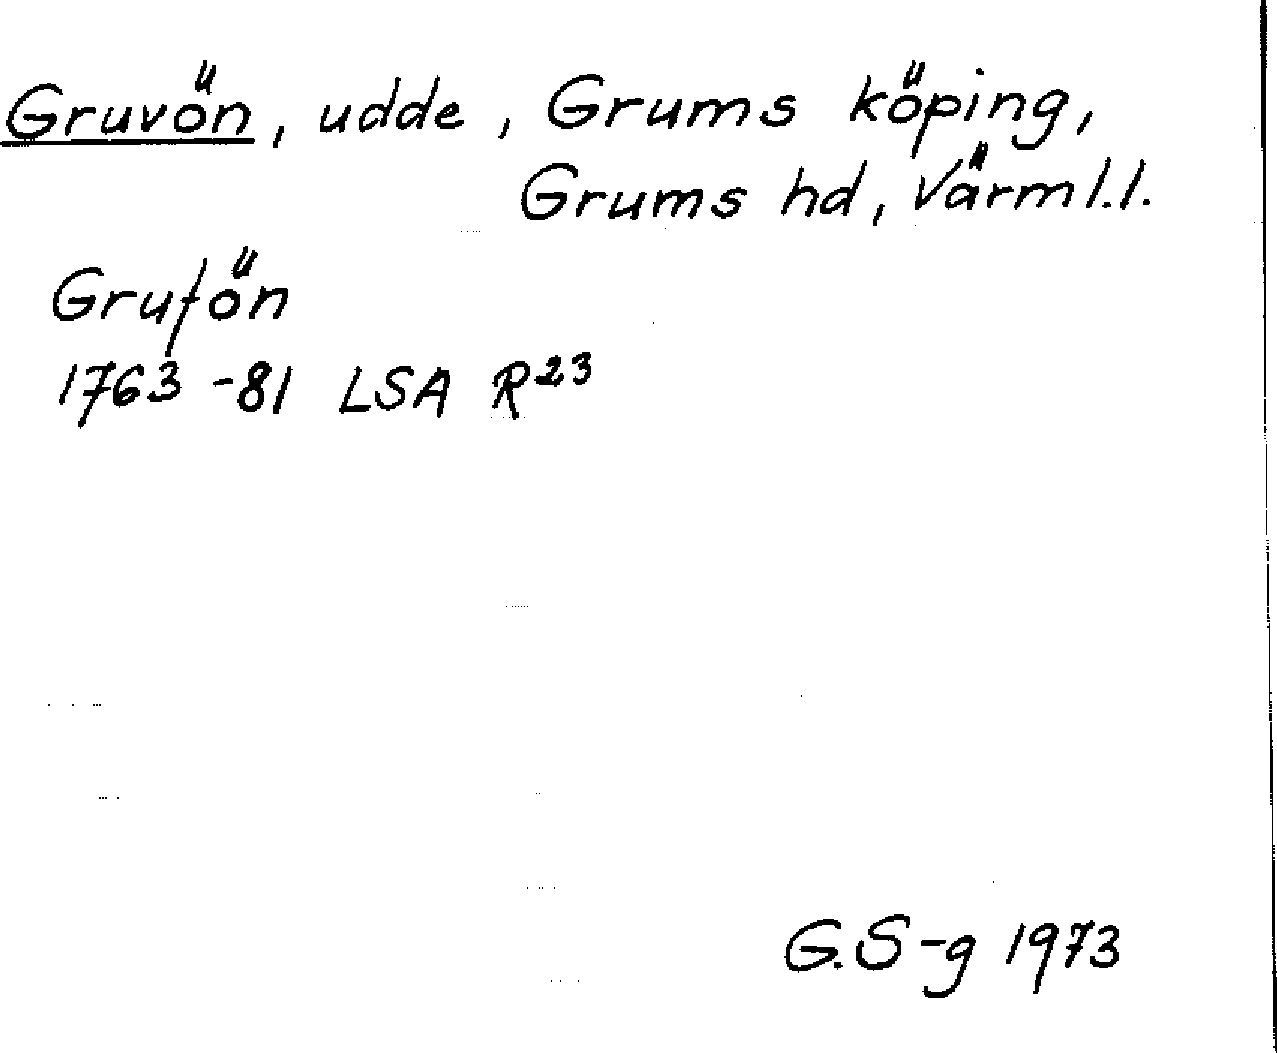 Gruvön, udde, Grums köping,
Grums hd, Värml.l.
Grufön
1763-81 LSA R²³
G.S-g 1973